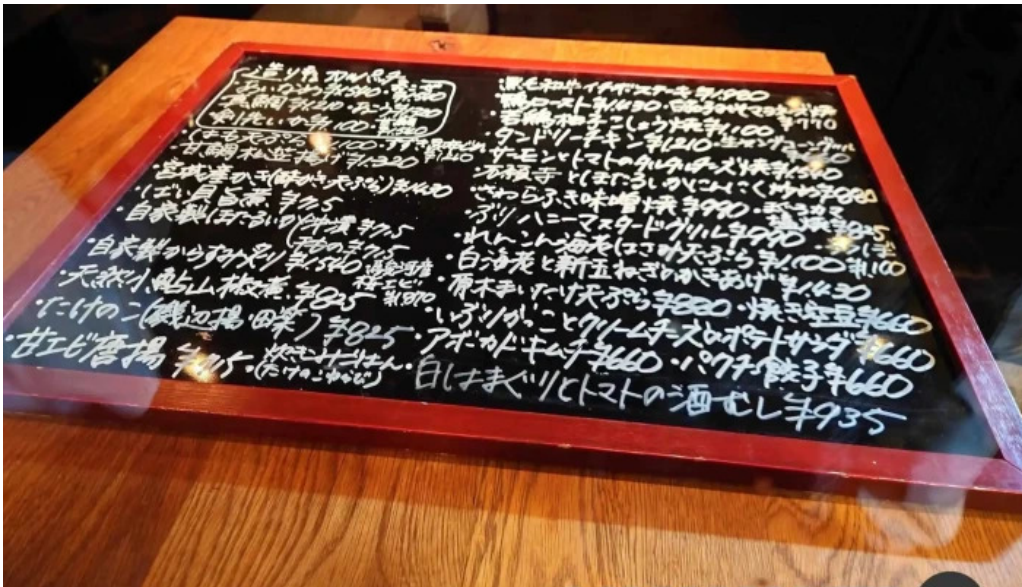 造り カルパッチョ
あいなめ
真鯛 ¥1210
剣先いか ¥1100
はも天ぷら ¥1100
・甘鯛松笠揚げ ¥1320
・宮城産かき(味かき天ぷら) ¥1430
・ばい貝旨煮 ¥715
・自家製ほたるいか沖漬 ¥715
¥715
・自家製からすみ ¥1540 桜エビ
・天然小鮎山椒煮 ¥825
・たけのこ(磯辺揚・田楽) ¥825
・甘エビ唐揚 ¥715 ・炊き込みごはん
(たけのこ)
・黒毛和牛イチボステーキ ¥1980
・鴨ロースト ¥1430 ¥770
・若鶏柚子こしょう焼 ¥1100
・タンドリーチキン ¥1210
・サーモンとトマトのタルタルチーズ焼 ¥1540
とほたるいかにんにく炒め ¥880
・さわらふき味噌焼 ¥990 ・まぐろカマ塩焼 ¥825
・ぶりハニーマスタードグリル ¥990
・れんこん海老はさみ天ぷら ¥1100 ¥1100
・白海老と新玉ねぎのかきあげ ¥1430
・原木まいたけ天ぷら ¥880 ・焼き空豆 ¥660
・いぶりがっことクリームチーズのポテトサラダ ¥660
・アボカドキムチ ¥660 ・パクチー餃子 ¥660
・白はまぐりとトマトの酒むし ¥935